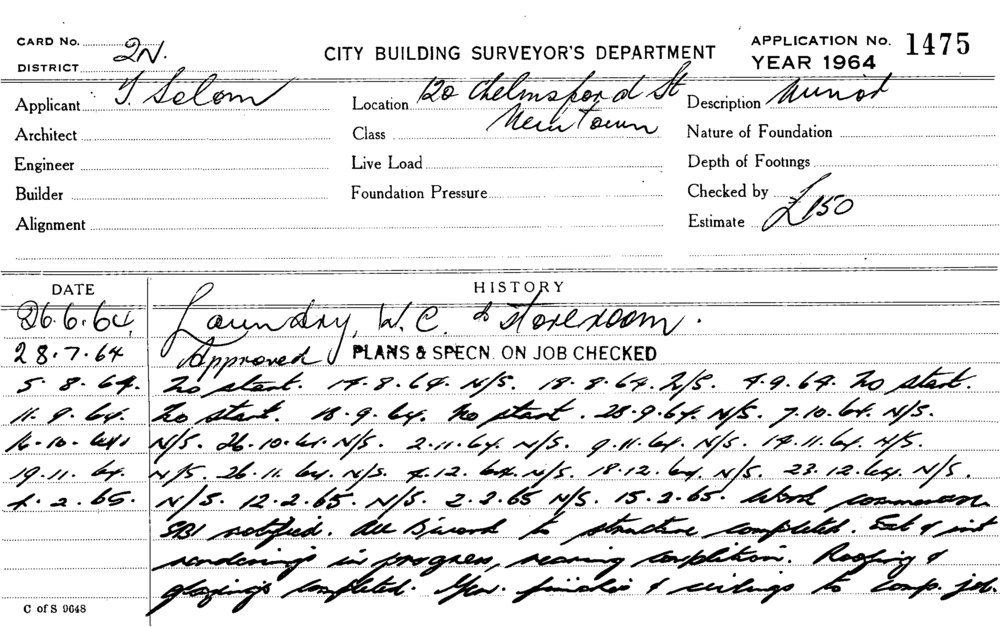 CARD No. 2N.
DISTRICT
CITY BUILDING SURVEYOR'S DEPARTMENT
APPLICATION No. 1475
YEAR 1964
Applicant
Location 120 Chelmsford St
Newtown
Description Minor
Architect
Class
Nature of Foundation
Engineer
Live Load
Depth of Footings
Builder
Foundation Pressure
Checked by
Alignment
Estimate £150
DATE HISTORY
26.6.64. Laundry, W.C. & Storeroom.
28.7.64 Approved PLANS & SPECN. ON JOB CHECKED
5.8.64. No start. 14.8.64. N/S. 18.8.64. N/S. 4.9.64. No start.
11.9.64. No start. 18.9.64. No start. 28.9.64. N/S. 7.10.64. N/S.
16.10.64 N/S. 26.10.64. N/S. 2.11.64. N/S. 9.11.64. N/S. 14.11.64. N/S.
19.11.64. N/S. 26.11.64. N/S. 4.12.64. N/S. 18.12.64 N/S. 23.12.64. N/S.
4.2.65. N/S. 12.2.65. N/S. 2.3.65 N/S. 15.3.65. Work
notified. All B/work to structure completed. Ext & int
renderings in progress, nearing completion. Roofing &
glazings completed. Gen. finishes & ceilings to comp. job.
C of S 9648